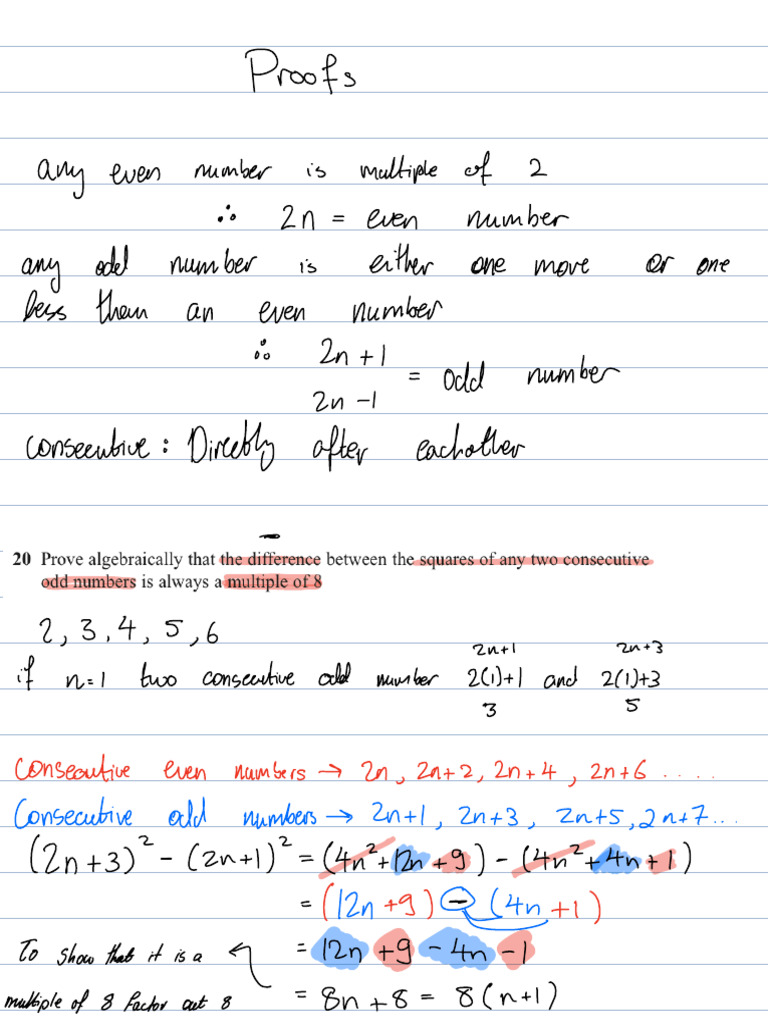 Proofs
any even number is multiple of 2
∴ 2n = even number
any odd number is either one more or one
less them an even number
∴ 2n + 1
= odd number
2n - 1
consecutive : Directly after eachother
20 Prove algebraically that the difference between the squares of any two consecutive
odd numbers is always a multiple of 8
2, 3, 4, 5, 6
2n+1 2n+3
if n=1 two consecutive odd number 2(1)+1 and 2(1)+3
3 5
Consecutive even numbers → 2n, 2n+2, 2n+4, 2n+6 ....
Consecutive odd numbers → 2n+1, 2n+3, 2n+5, 2n+7...
(2n+3)² - (2n+1)² = (4n²+12n+9) - (4n²+4n+1)
= (12n+9) - (4n+1)
To show that it is a = 12n +9 - 4n -1
multiple of 8 factor out 8 = 8n + 8 = 8(n+1)